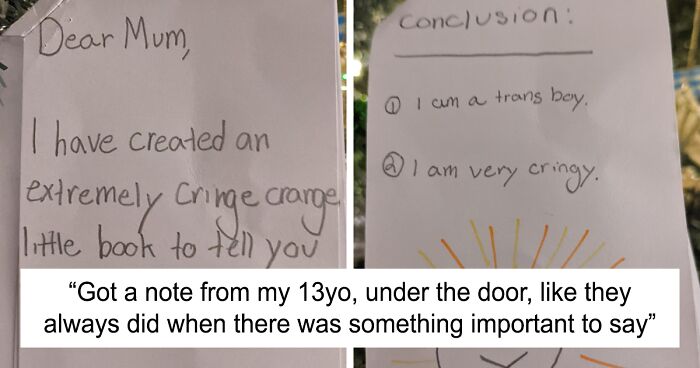 Dear Mum,
I have created an
extremely Cringe crange
little book to tell you
Conclusion:
① I am a trans boy.
② I am very cringy.
“Got a note from my 13yo, under the door, like they
always did when there was something important to say”